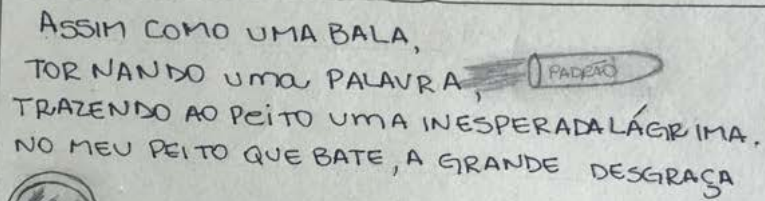 ASSIM COMO UMA BALA,
TORNANDO uma PALAVRA, PADRÃO
TRAZENDO AO PEiTO UMA INESPERADA LÁGRIMA.
NO MEU PEITO QUE BATE, A GRANDE DESGRAÇA